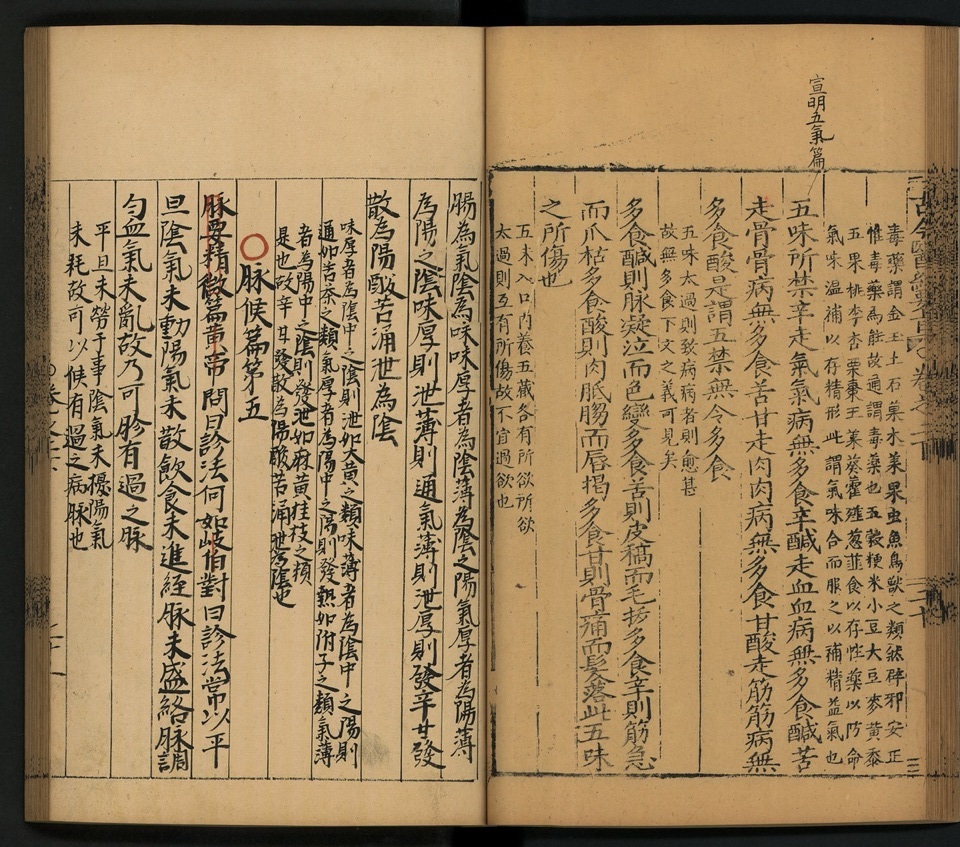 宣明五氣篇
毒藥謂金玉土石菓木菜果虫魚鳥獸之類然碎邪安正
惟毒藥為能故通謂毒藥也五穀粳米小豆大豆麥黃黍
五果桃李杏栗棗五菜葵藿薤葱韮食以存性藥以防命
氣味温補以存精形此謂氣味合而服之以補精益氣也
五味所禁辛走氣氣病無多食辛鹹走血血病無多食鹹苦
走骨骨病無多食苦甘走肉肉病無多食甘酸走筋筋病無
多食酸是謂五禁無令多食
五味太過則致病病者則愈甚
故無多食下文之義可見矣
多食鹹則脉凝泣而色變多食苦則皮槁而毛拔多食辛則筋急
而爪枯多食酸則肉胝䐢而唇揭多食甘則骨痛而髮落此五味
之所傷也
五未入口内養五藏各有所欲所欲
太過則互有所傷故不宜過欲也
腸為氣陰為味味厚者為陰薄為陰之陽氣厚者為陽薄
為陽之陰味厚則泄薄則通氣薄則泄厚則發辛甘發
散為陽酸苦涌泄為陰
味厚者為陰中之陰則泄如大黃之類味薄者為陰中之陽則
通如苦茶之類氣厚者為陽中之陽則發熱如附子之類氣薄
者為陽中之陰則發泄如麻黃桂枝之類
是也故辛甘發散為陽酸苦涌泄為陰也
脉候篇第五
脉要精微篇黃帝問曰診法何如歧伯對曰診法常以平
旦陰氣未動陽氣未散飲食未進經脉未盛絡脉調
勻血氣未亂故乃可胗有過之脉
平旦未勞于事陰氣未擾陽氣
未耗故可以候有過之病脉也